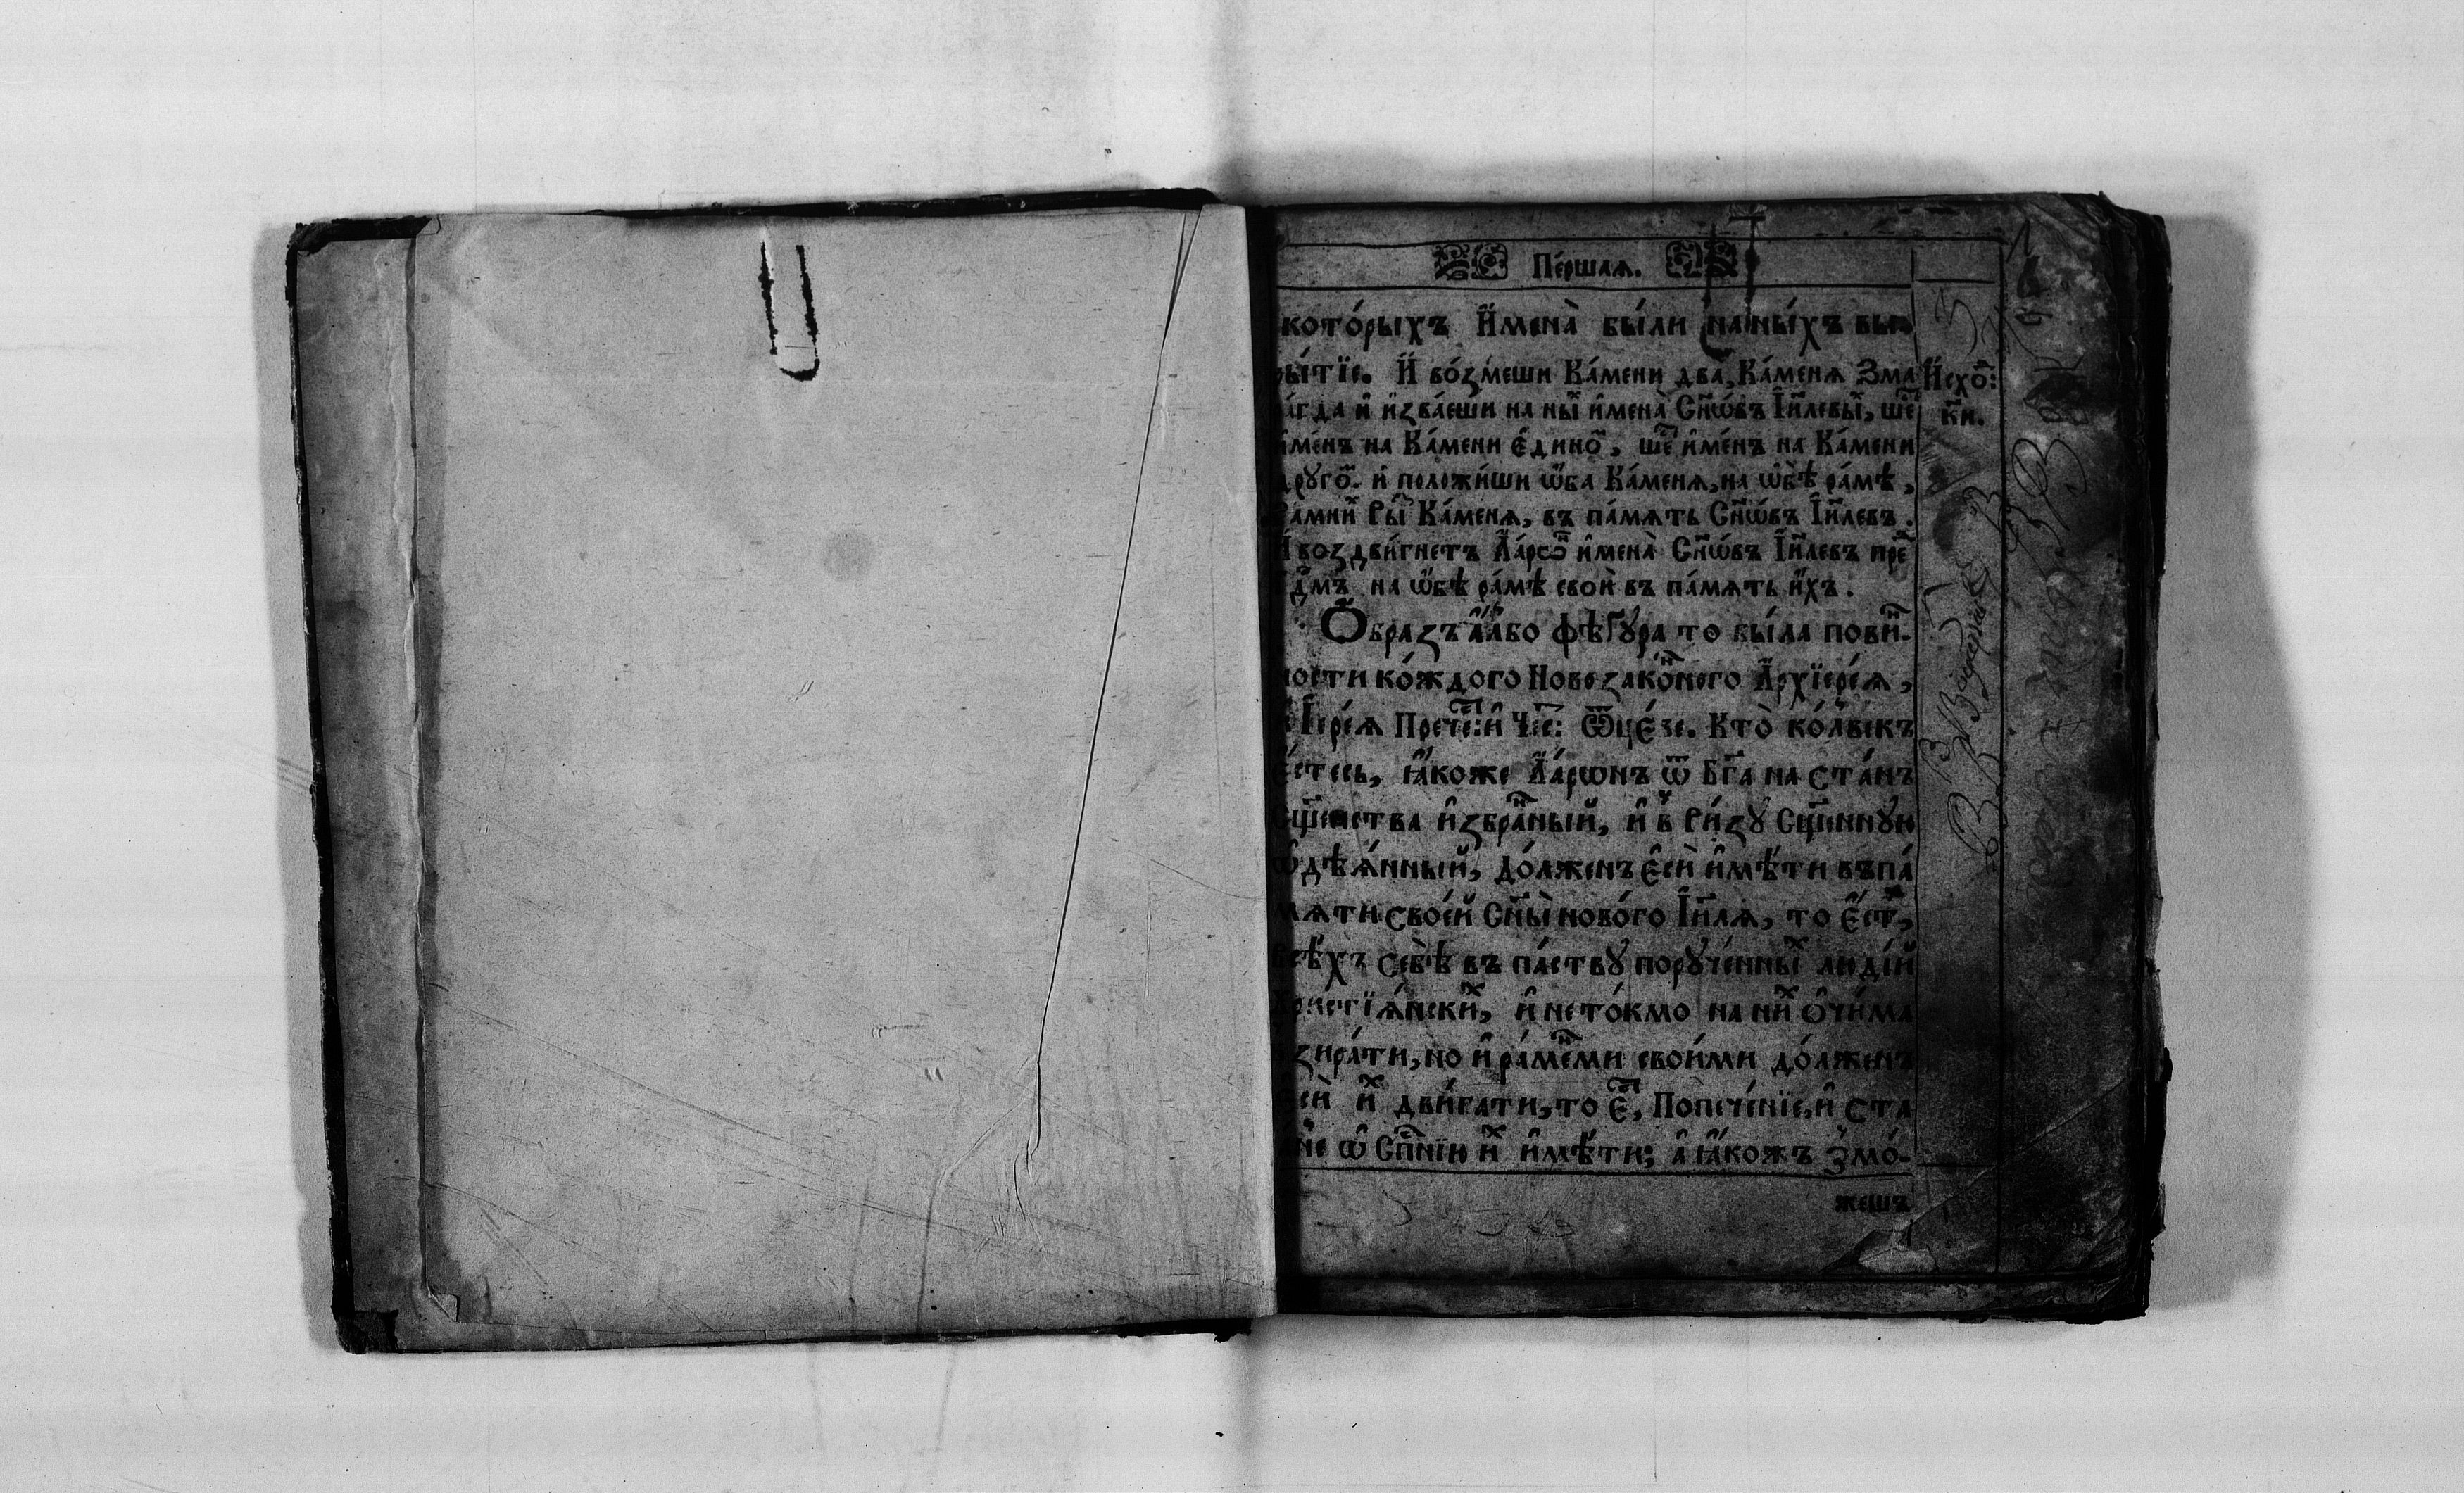 Пе́ршаѧ.
кото́рыхъ И҆мена̀ бы́ли на ны́хъ вы
ры́тїе. И҆ во́змеши Ка́мени два, Ка́менѧ Зма
ра́гда и҆ и҆зва́еши на ны̑ⷯ и҆мена̀ Сн҃ѡ́въ І҆и҃левы́ⷯ, ше́ⷭ
И҆схо́ⷣ:
к҃и.
и҆ме́нъ на Ка́мени є҆дино́ⷨ, ше́ⷭ и҆ме́нъ на Ка́мени
друго́ⷨ. и҆ положи́ши ѡ҆́ба Ка́менѧ, на ѡ҆́бѣ ра́мѣ,
Ра́мниⷯ Ри́ⷥ Ка́менѧ, въ па́мѧть Сн҃ѡ́въ І҆и҃левъ.
И҆ воздви́гнетъ А҆арѡ́ⷩ и҆мена̀ Сн҃ѡ́въ І҆и҃левъ преⷣ
Гдⷭ҇мъ на ѡ҆́бѣ ра́мѣ свои̑ въ па́мѧть и҆́хъ.
Ѻ҆́бразъ а҆́лбо фѣґу́ра то была̀ пови́ⷩ-
ности ко́ждого Новозако́ⷩного А҆рхїере́ѧ,
и҆ І҆ере́ѧ Пречеⷭ: и҆ Чеⷭ: Ѿце́зе. Кто̀ ко́лвекъ
є҆́стесь, ꙗ҆́коже А҆арѡнъ ѿ Бг҃а на ста́нъ
Сщ҃енства и҆збра́ⷩный, и҆ в Ри́зꙋ Сщ҃еннꙋю
ѡ҆дѣѧ́нный, до́лженъ є҆сѝ и҆мѣ́ти въ па́
мѧти свое́й Сн҃ы̀ но́вого І҆и҃лѧ, то є҆́стъ,
всѣ́хъ себѣ̀ въ па́ствꙋ порꙋче́нныⷯ люді́й
Христїѧ́нскиⷯ, и҆ нето́кмо на ни́ⷯ ѻ҆чи́ма
взира́ти, но и҆ раме́ⷩми свои́ми до́лженъ
є҆сѝ и҆́ⷯ дви́гати, то є҆́ⷭ, Попече́нїе, и҆ ста
ра́нїе ѡ҆ Сп҃се́нїи и҆́ⷯ и҆мѣ́ти; а҆ ꙗ҆́кожъ змо́-
жешъ